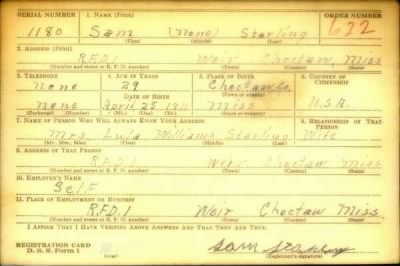 SERIAL NUMBER 1. NAME (Print) ORDER NUMBER
1180 Sam (none) Starling 622
(First) (Middle) (Last)
2. ADDRESS (Print)
R.F.D.1 Weir Choctaw, Miss
(Number and street or R. F. D. number) (Town) (County) (State)
3. TELEPHONE 4. AGE IN YEARS 5. PLACE OF BIRTH 6. COUNTRY OF CITIZENSHIP
none 29 Choctaw Co.
DATE OF BIRTH (Town or county)
none April 25 1911 Miss U.S.A.
(Exchange) (Number) (Mo.) (Day) (Yr.) (State or country)
7. NAME OF PERSON WHO WILL ALWAYS KNOW YOUR ADDRESS 8. RELATIONSHIP OF THAT PERSON
Mrs. Lula Williams Starling Wife
(Mr., Mrs., Miss) (First) (Middle) (Last)
9. ADDRESS OF THAT PERSON
R.F.D.1 Weir Choctaw Miss
(Number and street or R. F. D. number) (Town) (County) (State)
10. EMPLOYER'S NAME
Self
11. PLACE OF EMPLOYMENT OR BUSINESS
R.F.D.1 Weir Choctaw Miss.
(Number and street or R. F. D. number) (Town) (County) (State)
I AFFIRM THAT I HAVE VERIFIED ABOVE ANSWERS AND THAT THEY ARE TRUE.
REGISTRATION CARD
D. S. S. Form 1 (over) (Registrant's signature)
Sam Starling